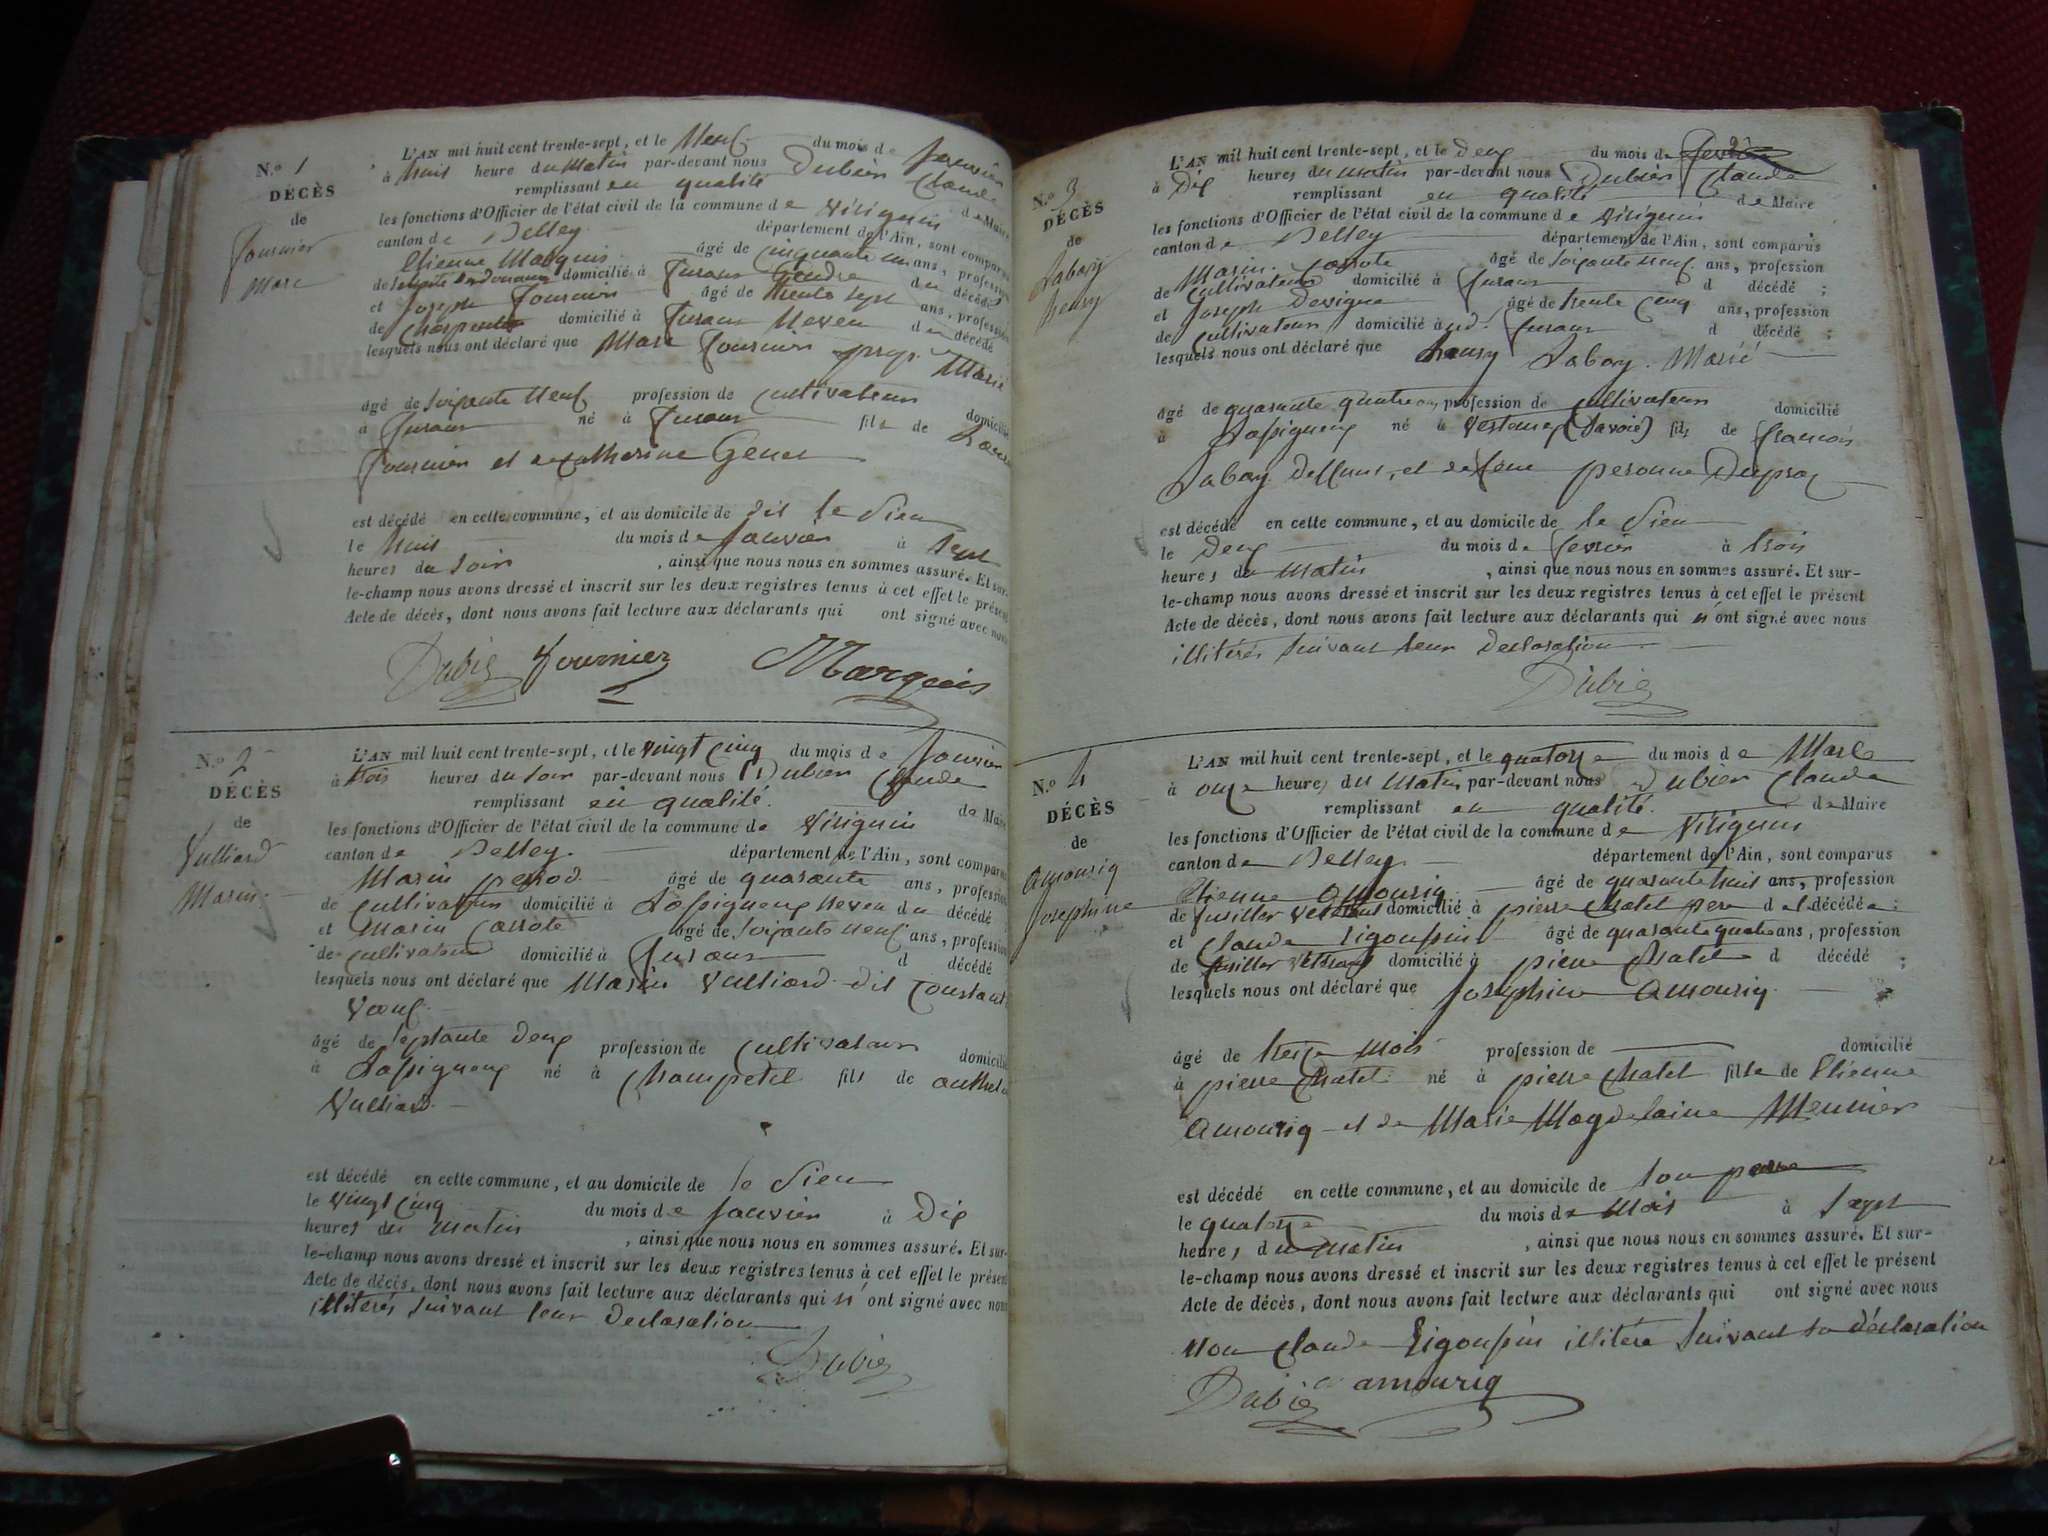 N.º 1
DÉCÈS
de
fournier
Marc
L'AN mil huit cent trente-sept, et le Neuf du mois de janvier
à huit heure du Matin par-devant nous Dubien Claude
remplissant en qualité de Maire
les fonctions d'Officier de l'état civil de la commune de Virignin
canton de Belley département de l'Ain, sont comparus
Etienne Marquis âgé de cinquante un ans, profession
de domicilié à furans Gendre du décédé
et Joseph fournier âgé de trente sept ans, profession
de Charpentier domicilié à furans Neveu du décédé
lesquels nous ont déclaré que Marc fournier Marié
âgé de soixante Neuf profession de cultivateur domicilié
à furans né à furans fils de
fournier et de Catherine Genet
est décédé en cette commune, et au domicile de dit le Sien
le huit du mois de janvier à sept
heures du soir, ainsi que nous nous en sommes assuré. Et sur-
le-champ nous avons dressé et inscrit sur les deux registres tenus à cet effet le présent
Acte de décès, dont nous avons fait lecture aux déclarants qui ont signé avec nous
Dubien fournier Marquis
N.º 2
DÉCÈS
de
Vulliard
Marin
L'AN mil huit cent trente-sept, et le vingt cinq du mois de janvier
à trois heures du soir par-devant nous Dubien Claude
remplissant en qualité de Maire
les fonctions d'Officier de l'état civil de la commune de Virignin
canton de Belley département de l'Ain, sont comparus
Marin perrod âgé de quarante ans, profession
de cultivateur domicilié à Lassignieux Neveu du décédé
et Marin Carrote âgé de soixante neuf ans, profession
de cultivateur domicilié à furans d décédé
lesquels nous ont déclaré que Marin Vulliard dit Constant
Vœuf
âgé de septante deux profession de cultivateur domicilié
à Lassignieux né à Champetel fils de anthelme
Vulliard
est décédé en cette commune, et au domicile de le Sien
le vingt cinq du mois de janvier à Dix
heures du matin, ainsi que nous nous en sommes assuré. Et sur-
le-champ nous avons dressé et inscrit sur les deux registres tenus à cet effet le présent
Acte de décès, dont nous avons fait lecture aux déclarants qui n'ont signé avec nous
illiterés suivant leur Declaration
Dubien
N.º 3
DÉCÈS
de
Labory
henry
L'AN mil huit cent trente-sept, et le deux du mois de fevrier
à Dix heures du matin par-devant nous Dubien Claude
remplissant en qualité de Maire
les fonctions d'Officier de l'état civil de la commune de Virignin
canton de Belley département de l'Ain, sont comparus
Marin Carrote âgé de soixante neuf ans, profession
de Cultivateur domicilié à furans d décédé ;
et Joseph Devigne âgé de trente cinq ans, profession
de cultivateur domicilié à ud. furans d décédé ;
lesquels nous ont déclaré que henry Labory Marié
âgé de quarante quatre ans profession de cultivateur domicilié
à Lassignieux né à (Savoie) fils de francois
Labory Deffunt, et de feue peronne Dupraz
est décédé en cette commune, et au domicile de le Sien
le Deux du mois de fevrier à trois
heures du matin, ainsi que nous nous en sommes assuré. Et sur-
le-champ nous avons dressé et inscrit sur les deux registres tenus à cet effet le présent
Acte de décès, dont nous avons fait lecture aux déclarants qui n'ont signé avec nous
illiterés suivant leur Declaration
Dubien
N.º 4
DÉCÈS
de
amouriq
Josephine
L'AN mil huit cent trente-sept, et le quatorze du mois de Mars
à onze heures du matin par-devant nous Dubien Claude
remplissant en qualité de Maire
les fonctions d'Officier de l'état civil de la commune de Virignin
canton de Belley département de l'Ain, sont comparus
Etienne amouriq âgé de quarante huit ans, profession
de fusillier veteran domicilié à pierre chatel pere d e l décédée ;
et Claude Ligoussin âgé de quarante quatre ans, profession
de fusillier veteran domicilié à pierre chatel d décédé ;
lesquels nous ont déclaré que Josephine amouriq
âgé de treize mois profession de domicilié
à pierre chatel né à pierre chatel fille de Etienne
amouriq et de Marie Magdelaine Meunier
est décédé en cette commune, et au domicile de son pere
le quatorze du mois de Mars à sept
heures du matin, ainsi que nous nous en sommes assuré. Et sur-
le-champ nous avons dressé et inscrit sur les deux registres tenus à cet effet le présent
Acte de décès, dont nous avons fait lecture aux déclarants qui ont signé avec nous
Non Claude Ligoussin illitéré suivant sa déclaration
Dubien amouriq